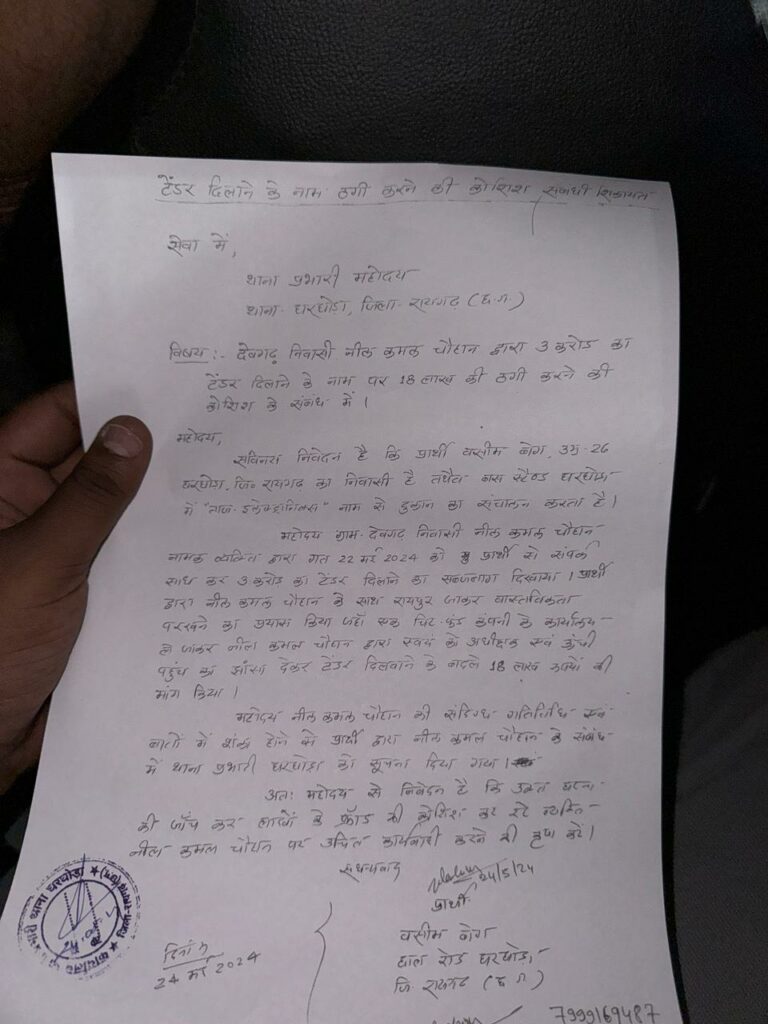 टेंडर दिलाने के नाम ठगी करने की कोशिश संबंधी शिकायत
सेवा में,
थाना प्रभारी महोदय
थाना- घरघोडा, जिला- रायगढ़ (छ.ग.)
विषय :- देवगढ़ निवासी नील कमल चौहान द्वारा 3 करोड का
टेंडर दिलाने के नाम पर 18 लाख की ठगी करने की
कोशिश के संबंध में ।
महोदय,
सविनय निवेदन है कि प्रार्थी वसीम बेग, उम्र-26
घरघोडा, जि० रायगढ़ का निवासी है तथैव बस स्टैण्ड घरघोडा
में "ताज इलेक्ट्रानिक्स" नाम से दुकान का संचालन करता है ।
महोदय ग्राम- देवगढ़ निवासी नील कमल चौहान
नामक व्यक्ति द्वारा गत 22 मई 2024 को प्रार्थी से संपर्क
साध कर 3 करोड का टेंडर दिलाने का सब्जबाग दिखाया । प्रार्थी
द्वारा नील कमल चौहान के साथ रायपुर जाकर वास्तविकता
परखने का प्रयास किया जहाँ एक चिट-फंड कंपनी के कार्यालय
ले जाकर नील कमल चौहान द्वारा स्वयं को अधीक्षक एवं ऊंची
पहुंच का झांसा देकर टेंडर दिलवाने के बदले 18 लाख रूपयों की
मांग किया ।
महोदय नील कमल चौहान की संदिग्ध गतिविधि एवं
बातों में शंका होने से प्रार्थी द्वारा नील कमल चौहान के संबंध
में थाना प्रभारी घरघोडा को सूचना दिया गया ।
अतः महोदय से निवेदन है कि उक्त घटना
की जाँच कर लाखों के फ्रॉड की कोशिश कर रहे व्यक्ति
नील कमल चौहान पर उचित कार्यवाही करने की कृपा करें ।
सधन्यवाद
24/5/24
प्रार्थी
वसीम बेग
रोड घरघोडा,
जि. रायगढ़ (छ.ग)
7999169487
दिनांक
24 मई 2024
थाना घरघोडा